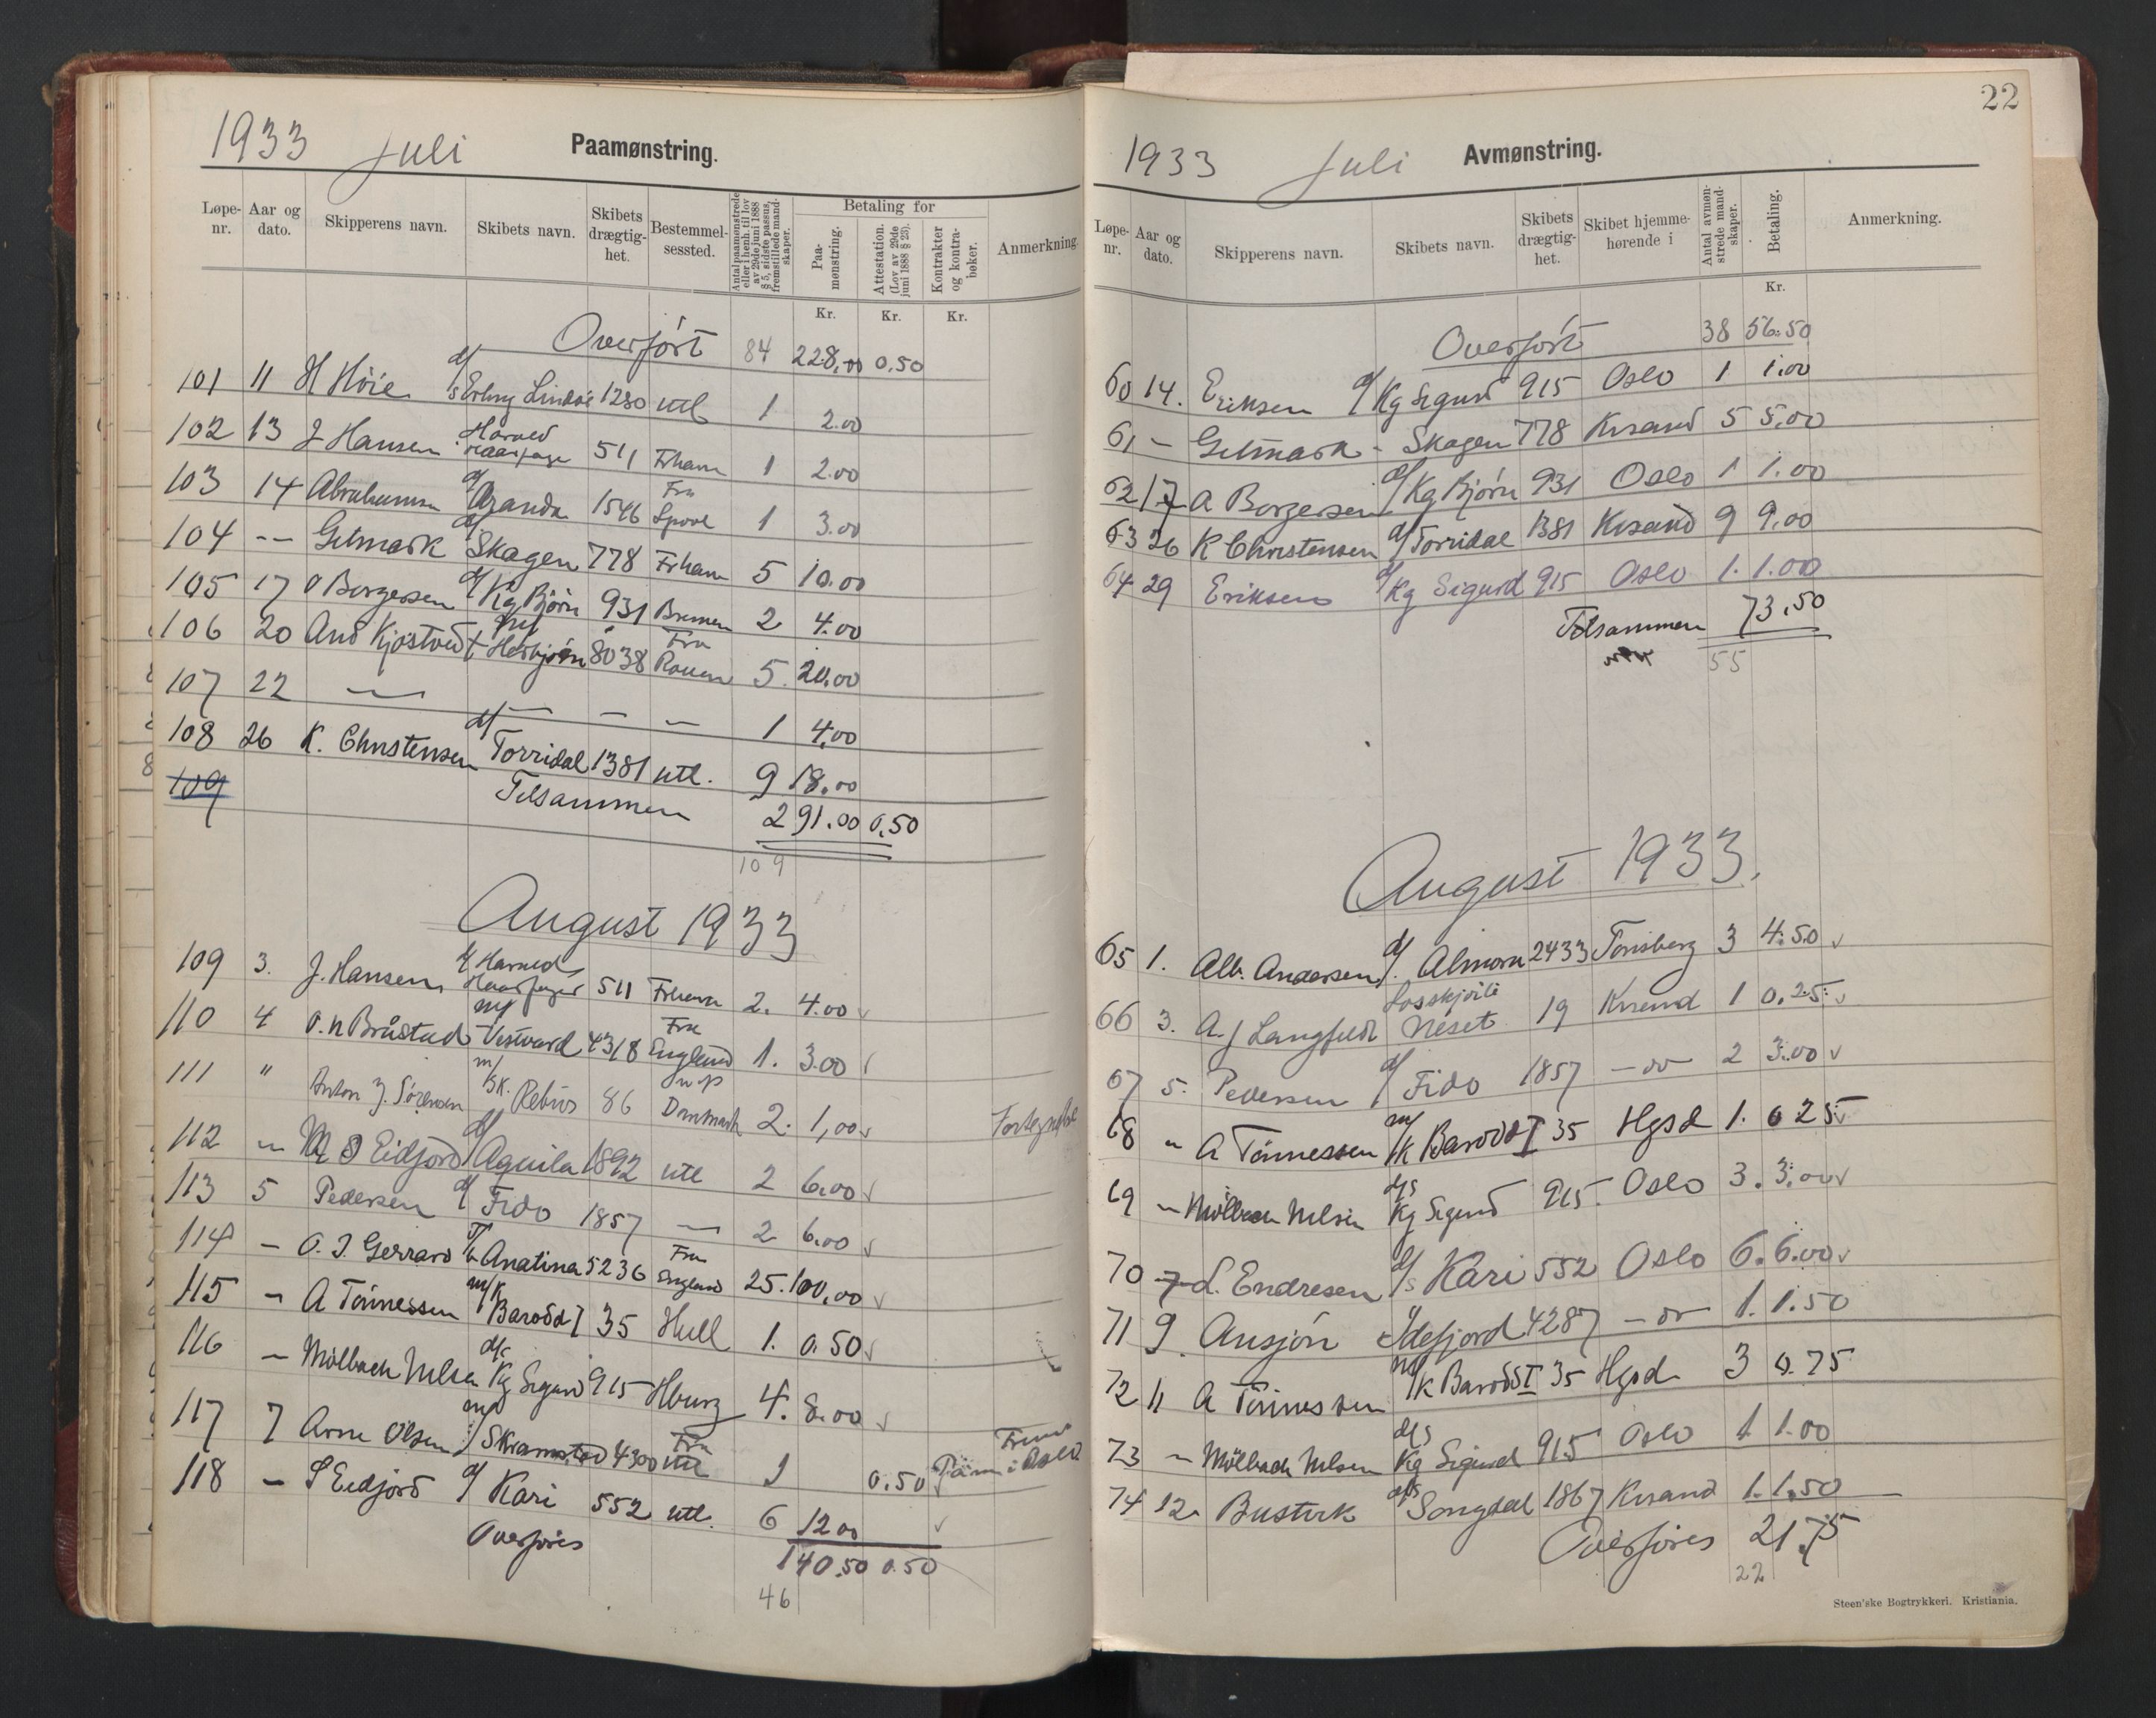 1933 Juli Paamønstring.
Løpe-nr. Aar og dato. Skipperens navn. Skibets navn. Skibets drægtig-het. Bestemmel-sessted. Antal paamønstrede eller i henh. til lov av 29de juni 1888 § 5, sidste passus, fremstillede mand-skaper. Betaling for Paa-mønstring. Attestation. (Lov av 29de juni 1888 § 23). Kontrakter og kontra-bøker. Anmerkning.
Kr. Kr. Kr.
Overført 84 228,00 0,50
101 11 H Höie d/s Erling Lindöe 1280 utl 1 2.00
102 13 J Hansen Harald Haarfager 511 Frhavn 1 2.00
103 14 Abrahamsen d/ Aranda 1546 Fra Lpool 1 3.00
104 -- Gitmark d/ Skagen 778 Frhavn 5 10.00
105 17 O Borgersen d/ Kg Bjørn 931 Bremen 2 4.00
106 20 And Kjöstvedt m/t Herbjörn 8038 Fra Rouen 5. 20.00
107 22 — — — — 1 4,00
108 26 K. Christensen d/ Torridal 1381 utl. 9 18.00
109 Tilsammen 291.00 0.50
109
August 1933
109 3. J. Hansen d/ Harald Haarfager 511 Frhavn 2. 4.00 ✓
110 4 O. N Bråstad m/ Vestvard 4318 Fra England 1. 3.00 ✓
111 " Anton J. Sörensen m/sk. Rebus 86 Danmark 2. 1,00 ✓
112 — M O Eidjord d/ Aquila 1892 utl 2 6.00 ✓
113 5 Pedersen d/ Fido 1857 — 2 6.00 ✓
114 — O. J. Gerrard T/ Anatina 5236 Fra England 25. 100,00 ✓
115 — A Tönnessen m/k Barodd I 35 Hull 1. 0.50 ✓
116 — Mölbach Nelsen d/s Kg Sigurd 915 Hburg 4. 8.00 ✓
117 7 Arne Olsen m/ Skramstad 4300 Fra utl 1 0.50 i Oslo
118 — S Eidjord d/ Kari 552 utl. 6 12 00 ✓
Overføres 140.50 0.50
46
22
1933 Juli Avmønstring.
Løpe-nr. Aar og dato. Skipperens navn. Skibets navn. Skibets drægtig-het. Skibet hjemme-hørende i Antal avmøn-strede mand-skaper. Betaling. Anmerkning.
Kr.
Overført 38 56.50
60 14. Eriksen d/ Kg Sigurd 915 Oslo 1 1.00
61 — Gitmark - Skagen 778 Krsand 5 5,00
62 17 A Borgersen d/ Kg Bjørn 931 Oslo 1 1.00
63 26 K Christensen d/ Torridal 1381 Krsand 9 9.00
64 29 Eriksen d/ Kg Sigurd 915 Oslo 1. 1.00
Tilsammen 73.50
55
August 1933.
65 1. Alb. Andersen d/. Almora 2433 Tönsberg 3 4.50 ✓
66 3. A. J Langfeldt Losskjöite Neset 19 Krsand 1 0.25 ✓
67 5. Pedersen d/ Fido 1857 — do — 2 3.00 ✓
68 " A Tönnessen m/k Barodd I 35 Hgsd 1. 0 25 ✓
69 — Mölbach Nelsen d/s Kg Sigurd 915. Oslo 3. 3.00 ✓
70 7 L. Endresen d/s Kari 552 Oslo 6. 6.00 ✓
71 9. Ansjön Idefjord 4287 — do — 1. 1.50
72 11 A Tönnessen m/k Barodd I 35 Hgsd 3 0.75
73 — Mölbach Nelsen d/s Kg Sigurd 915 Oslo 1 1.00
74 12 d/s Songdal 1867 Krsand 1. 1.50
Overføres 21.75
22
Steen'ske Bogtrykkeri. Kristiania.